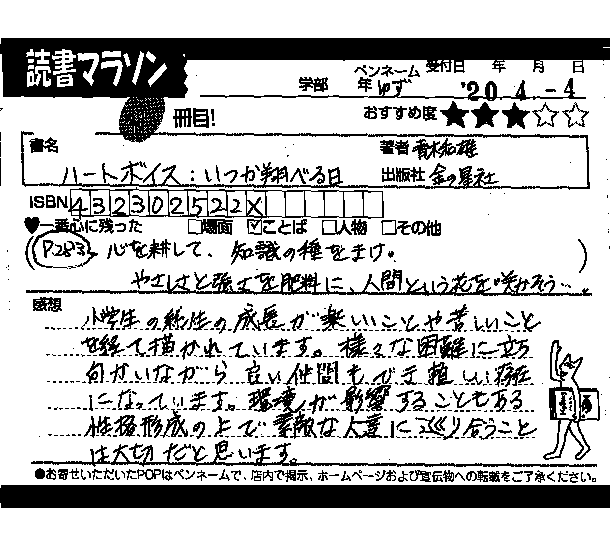 読書マラソン
学部 年 ペンネーム ゆず 受付日 年 月 日 '20.4.-4
冊目! おすすめ度 ★★★☆☆
書名 ハートボイス:いつか翔べる日
著者 青木和雄
出版社 金の星社
ISBN 432302522X
♥一番心に残った □場面 ☑ことば □人物 □その他
(P.283 心を耕して、知識の種をまけ。
やさしさと強さを肥料に、人間という花を咲かそう…。)
感想
小学生の 成長が楽しいことや苦しいこと
を経て描かれています。様々な困難に立ち
向かいながら 良い仲間も
になっています。環境が影響することもある
性格形成の上で素敵な人達に巡り合うこと
は大切だと思います。
●お寄せいただいたPOPはペンネームで、店内で掲示、ホームページおよび宣伝物への転載をご了承ください。